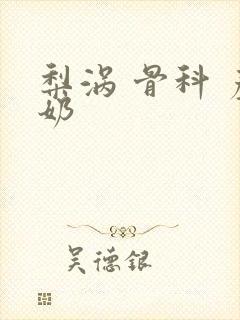 梨涡 骨科 
奶
吴德银